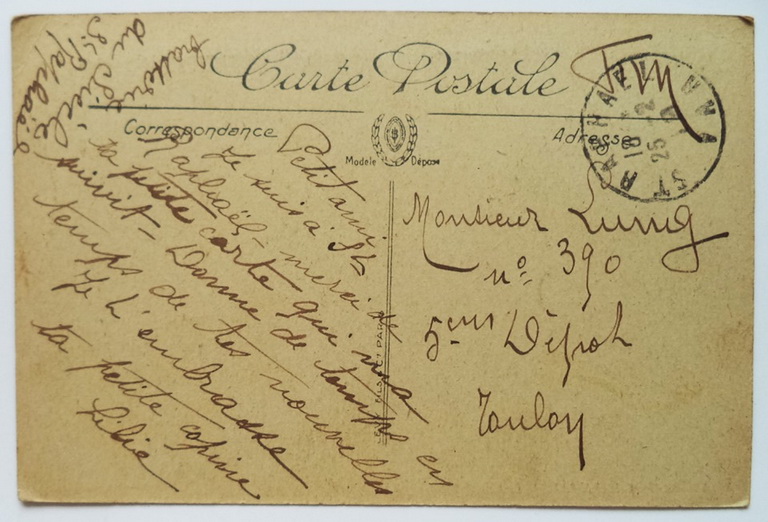 Carte Postale
Correspondance
Adresse
Modèle Déposé
FM
ST RAPHAEL
18
25
Petit ami,
Je suis à St
Raphaël, merci de
ta petite carte qui m'a
suivit - Donne de temps en
temps de tes nouvelles
Je t'embrasse
ta petite copine
Lilie
du Siècle
St Raphaël
Monsieur Lunig
n° 390
5eme Dépôt
Toulon